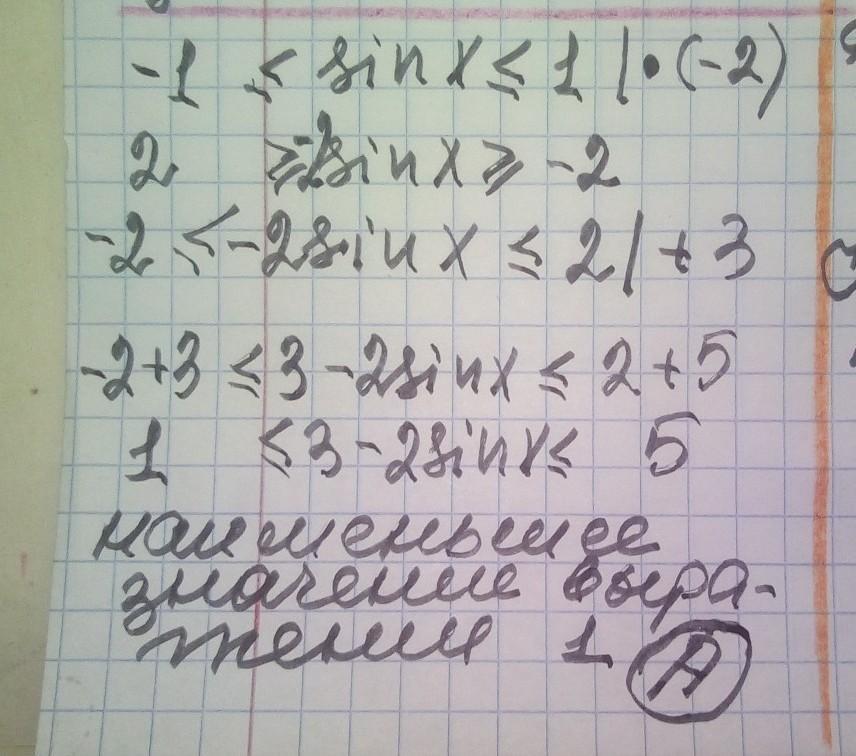 -1 ≤ sin x ≤ 1 | • (-2)
2 ≥ -2 sin x ≥ -2
-2 ≤ -2 sin x ≤ 2 | + 3
-2+3 ≤ 3 - 2 sin x ≤ 2 + 5
1 ≤ 3 - 2 sin x ≤ 5
наименьшее
значение выра-
жении 1 А